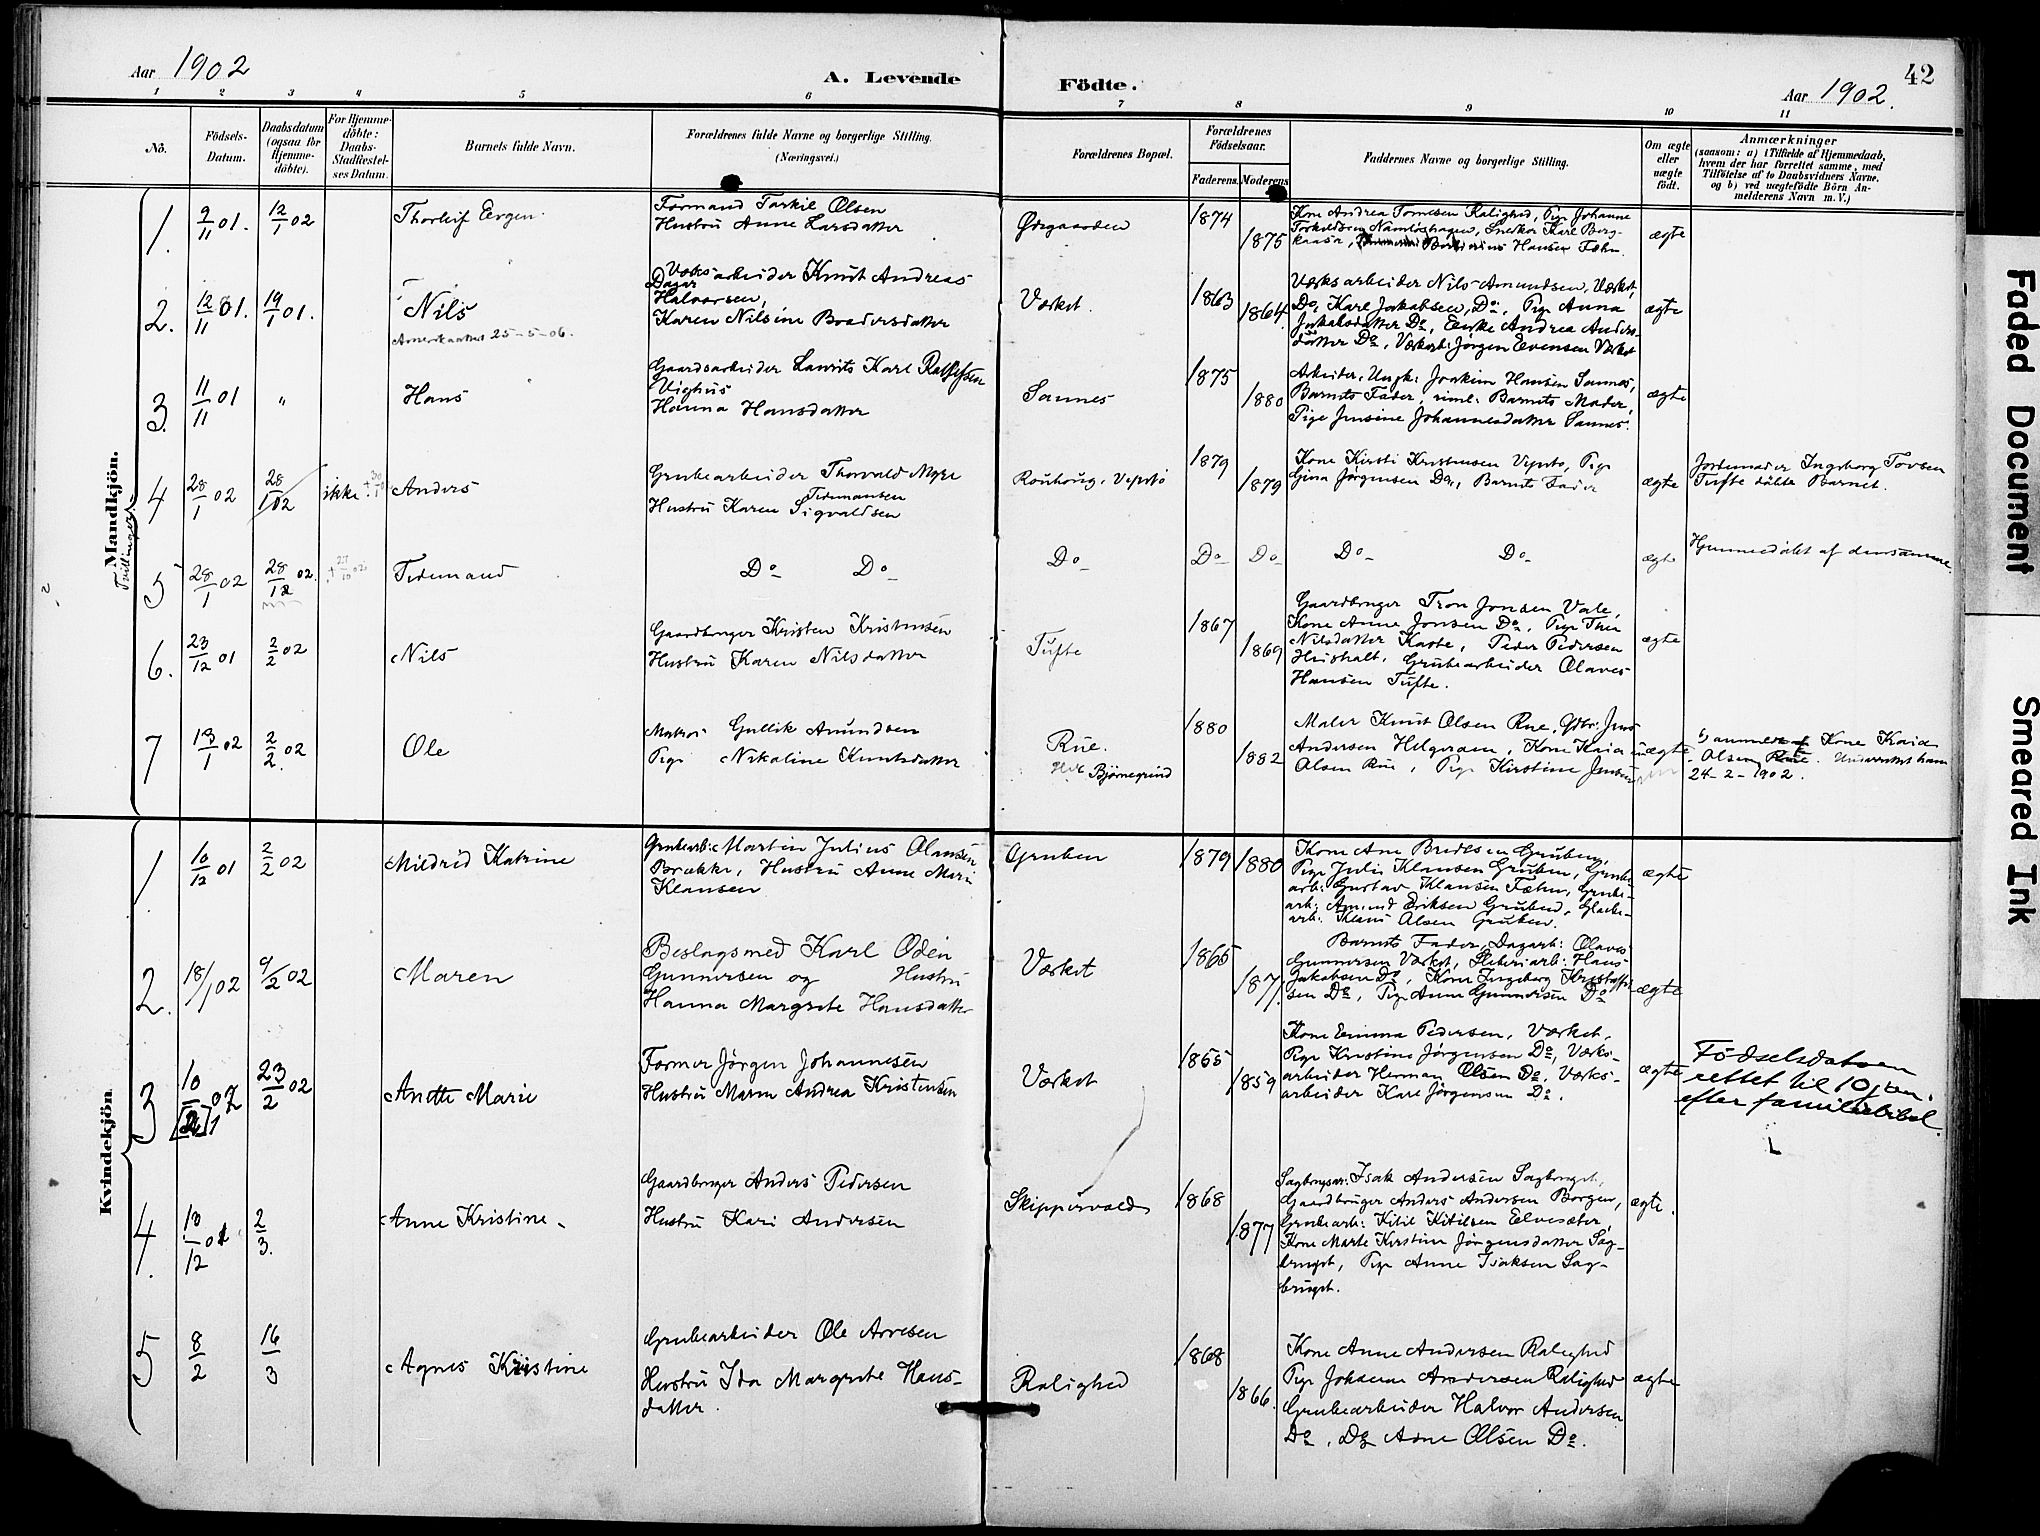 Aar 1902
A. Levende
Födte.
Aar 1902.
42
1 2 3 4 5 6 7 8 9 10 11
Nö.
Födsels-
Datum.
Daabsdatum
(ogsaa for
Hjemme-
döbte).
For Hjemme-
döbte:
Daabs-
Stadfæstel-
ses Datum.
Barnets fulde Navn.
Forældrenes fulde Navne og borgerlige Stilling.
(Næringsvei.)
Forældrenes Bopæl.
Forældrenes
Födselsaar.
Faderens. Moderens
Faddernes Navne og borgerlige Stilling.
Om ægte
eller
uægte
födt.
Anmærkninger
(saasom: a) i Tilfælde af Hjemmedaab,
hvem der har forrettet samme, med
Tilföielse af to Daabsvidners Navne,
og b) ved uægtefödte Börn An-
melderens Navn m. V.)
Mandkjön.
Tvillinger
1. 9/11 01. 12/1 02
Thorleif
Formand Torkil Olsen
Hustru Anne Larsdatter
Ødegaarden
1874
1875
Kone Andrea Tornesen Ralighed, Pige Johanne
Snedker Karl Berg-
Hansen Fæhn
ægte
2. 12/11 01. 19/1 01.
Nils
25-5-06.
Værksarbeider Knut Andreas
Halvorsen,
Karen Nilsine Boadersdatter
Værket.
1863
1864
Værksarbeider Nils Amundsen, Værket,
Do, Karl Jakobsen, Do, Pige Anna
Jakobsdatter Do, Enke Andrea Anders-
datter Do, Værksarb: Jørgen Evensen Værket
ægte
3. 11/11 01 "
Hans
Gaardsarbeider Laurits Karl
Vighus
Hanna Hansdatter
Sannes
1875
1880
Arbeider, Ungk: Joakim Hansen Sannes,
Barnets Fader, Barnets Moder,
Pige Jensine Johannesdatter Sannes.
ægte
4 28/1 02 28/1 02 ikke
Anders
Grubearbeider Thorvald Myre
Tidemansen
Hustru Karen Sigvaldsen
1879
1879
Kone Kirsti Kristensen Pige
Gina Jørgensen Do, Barnets Fader
ægte
Jordemoder Ingeborg Tovsen
Tufte döbte Barnet.
5 28/1 02 28/12 02.
Tidemand
Do Do
Do
Do Do
Do Do
ægte
Hjemmedøbt af densamme.
6. 23/12 01 2/2 02
Nils
Gaardbruger Kristen Kristensen
Hustru Karen Nilsdatter
Tufte
1867
1869
Gaardbruger Tron Jonsen Vale,
Kone Anne Jonsen Do, Pige
Nilsdatter Kaste, Peder Pedersen
Grubearbeider Olaves
Hansen Tufte.
ægte
7 13/1 02 2/2 02
Ole
Gullik Amundsen
Pige Nikoline Knutsdatter
Rue.
Bjørnegrind
1880
1882
Maler Knut Olsen Rue, Gdbr: Jens
Andersen Helgeraen, Kone Kaia
Olsen Rue, Pige Kirstine Jensen
uægte
Kone Kaia
Olsen Rue.
24-2-1902.
Kvindekjön.
1 10/12 01 2/2 02
Mildrid Katrine
Grubearb: Martin Julius Olausen
Brække, Hustru Anne Marie
Klausen
Gruben
1879
1880
Kone Ane Gruben,
Pige Julie Klausen Gruben, Grube-
arb: Gustav Klausen Fæhn, Grube-
arb: Amund Eriksen Gruben,
arb: Klaus Olsen Gruben.
ægte
2. 18/1 02 9/2 02
Maren
Beslagsmed Karl Odin
Gunnersen og Hustru
Hanna Margrete Hansdatter
Værket
1865
187
Barnets Fader, Dagarb: Olaves
Gunnersen Værket, Sliberiarb: Hans
Jakobsen Do, Kone Ingeborg
sen Do, Pige Anne Gunnersen Do
ægte
3 10/[]1 02 23/2 02
Anette Marie
Former Jörgen Johannesen
Hustru Maren Andrea Kristensen
Værket
1855
1859
Kone Emma Pedersen, Værket,
Pige Kristine Jørgensen Do, Værks-
arbeider Herman Olsen Do, Værks-
arbeider Karl Jørgensen Do.
ægte
Fødselsdatoen
rettet til 10 jan.
efter familiebibel.
4. 13/12 01 2/3.
Anne Kristine
Gaardbruger Anders Pedersen
Hustru Kari Andersen
Skippervold
1868
1877
Isak Andersen Sagbruget,
Gaardbruger Anders Andersen Borgen,
Grubearb: Kitil Kitilsen
Kone Marte Kirstine Jørgensdatter Sag-
bruget, Pige Anne Isaksen Sag-
bruget.
ægte.
5 8/2 16/3
Agnes Kristine
Grubearbeider Ole Arvesen
Hustru Ida Margrete Hans-
datter.
Ralighed
1868
1866.
Kone Anne Andersen Ralighed
Pige Johanne Andersen Ralighed
Grubearbeider Halvor Andersen
Do, Do Arne Olsen Do.
ægte
Faded Document
Smeared Ink